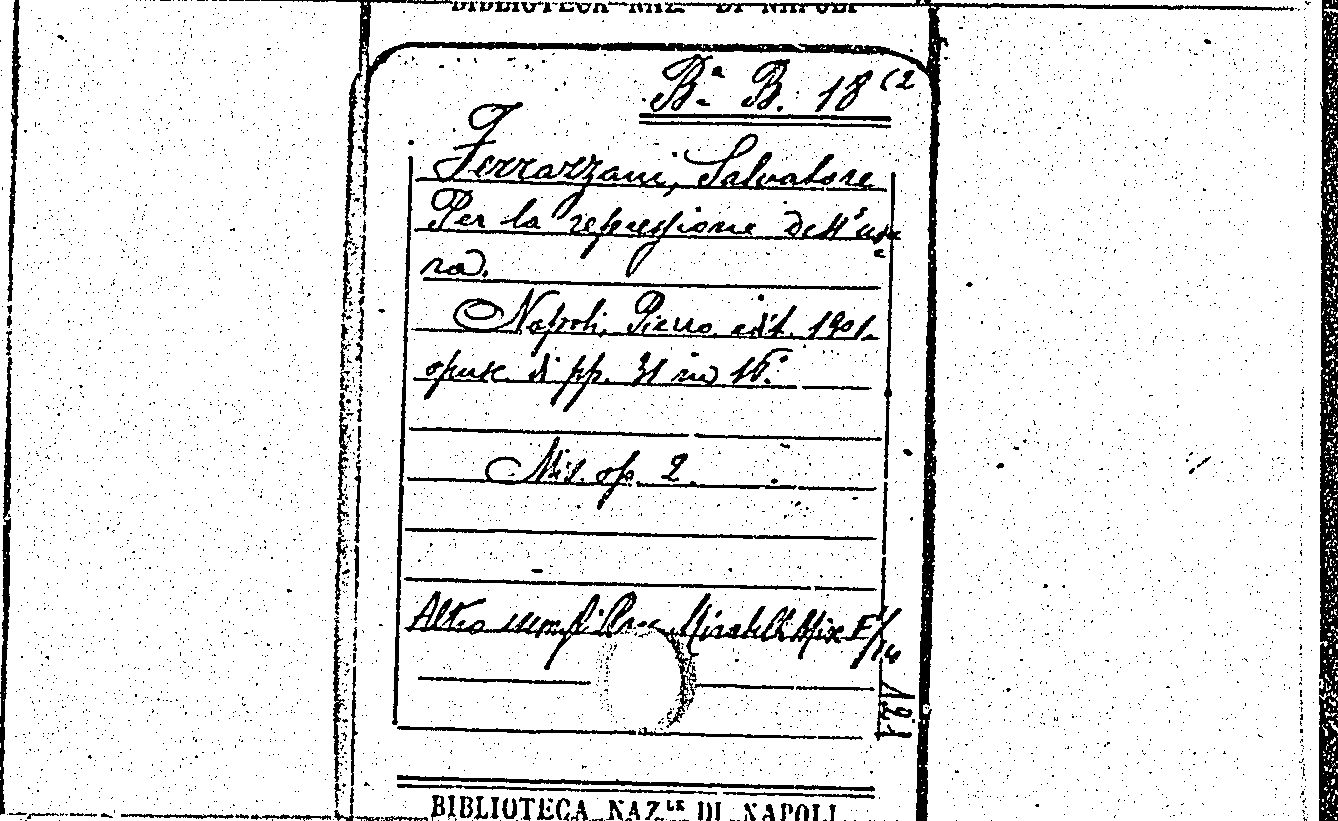 BIBLIOTECA NAZ.LE DI NAPOLI
Ba B. 18 (2
Ferrazzani, Salvatore
Per la repressione dell'usu
ra.
Napoli, Pierro edit. 1901.
opusc. di pp. 31 in 16.°
Mis. op. 2.
Altro esemp. Racc. Mirabelli Misc E1/14
BIBLIOTECA NAZ.LE DI NAPOLI